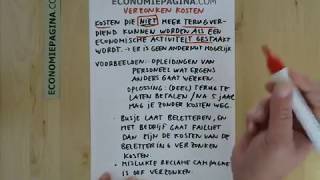 ECONOMIEPAGINA.COM
ECONOMIEPAGINA.COM
VERZONKEN KOSTEN
KOSTEN DIE NIET MEER TERUGVER-
DIEND KUNNEN WORDEN ALS EEN
ECONOMISCHE ACTIVITEIT GESTAAKT
WORDT. → ER IS GEEN ANDER NUT MOGELIJK
VOORBEELDEN: OPLEIDINGEN VAN
PERSONEEL WAT ERGENS
ANDERS GAAT WERKEN.
OPLOSSING: (DEEL) TERUG TE
LATEN BETALEN / NA 5 JAAR
MAG JE ZONDER KOSTEN WEG.
- BUSJE LAAT BELETTEREN, EN
HET BEDRIJF GAAT FAILLIET
DAN ZIJN DE KOSTEN VAN DE
BELETTERING VERZONKEN
KOSTEN
• MISLUKTE RECLAME CAMPAGNE
IS OOK VERZONKEN.